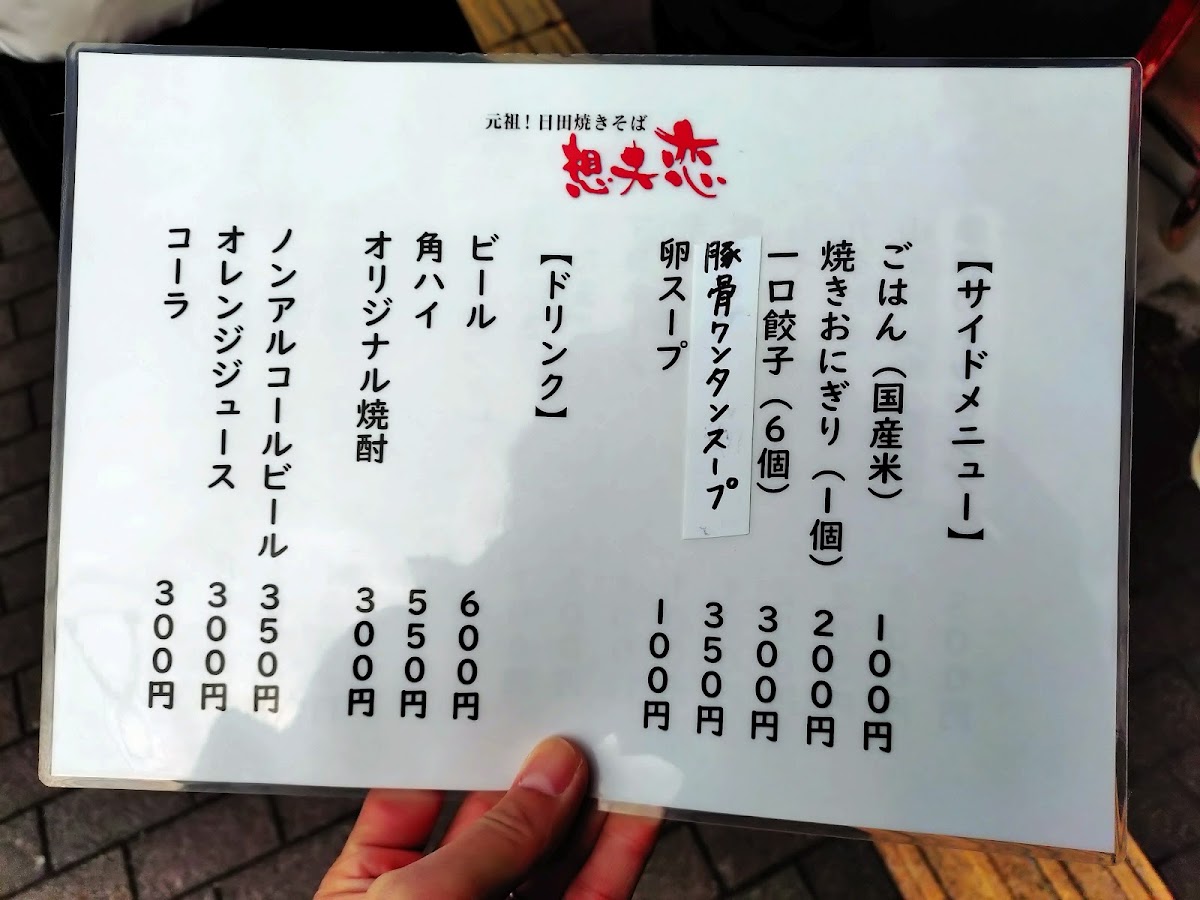 元祖！日田焼きそば
想夫恋
【サイドメニュー】
ごはん（国産米） 100円
焼きおにぎり（1個） 200円
一口餃子（6個） 300円
豚骨ワンタンスープ 350円
卵スープ 100円
【ドリンク】
ビール 600円
角ハイ 550円
オリジナル焼酎 300円
ノンアルコールビール 350円
オレンジジュース 300円
コーラ 300円